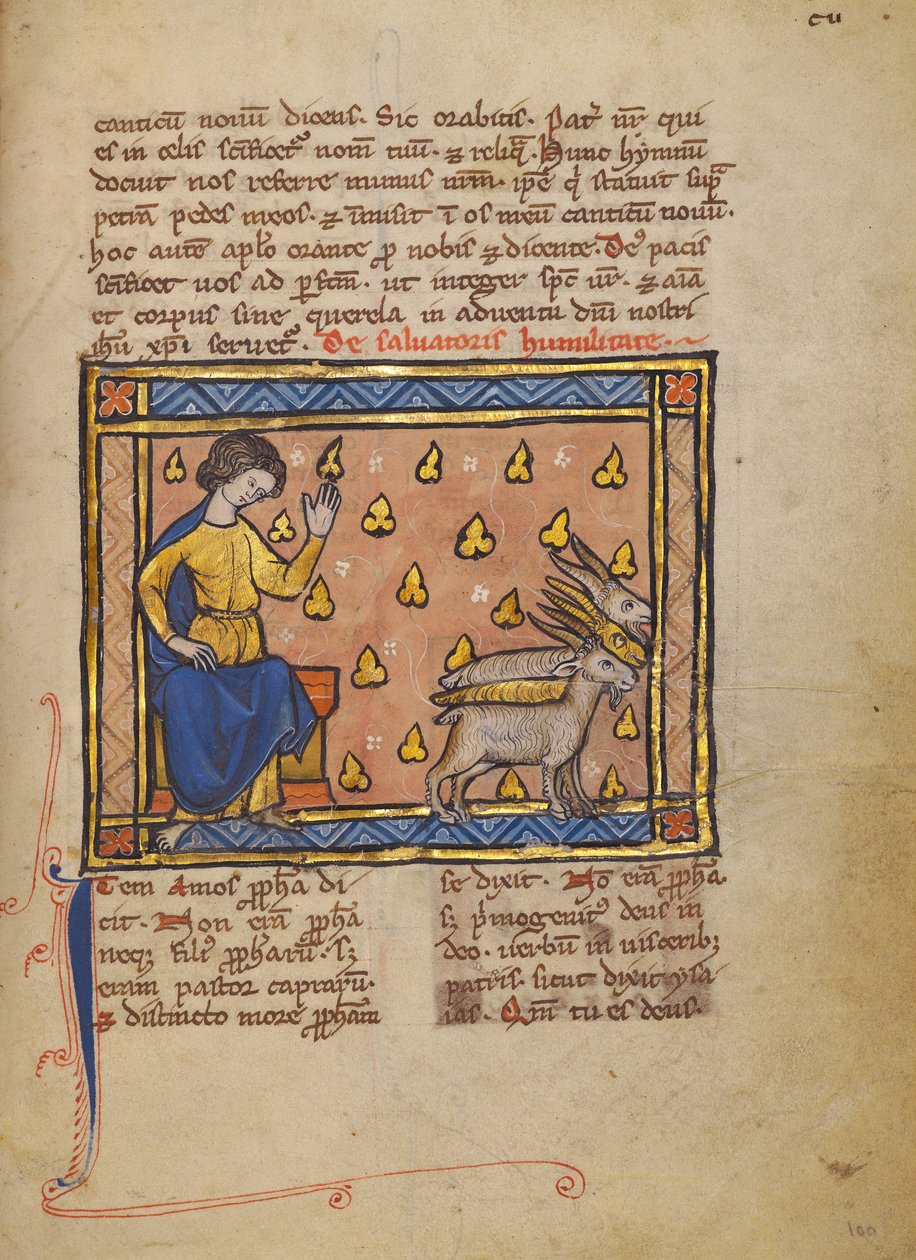 cu
canticū nouū dicens. Sic orabitis. Pat̄ nr̄ qui
es in celis sc̄ificet᷑ nom̄ tuū. ⁊ reliq̄. Hunc hẏmnū
docuit nos referre munus nr̄m. ip̄e q̇ statuit sup̄
petrā pedes meos. ⁊ īmisit ī os meū canticū nouū.
hoc autē apl̄o orante ꝓ nobis ⁊ dicente. De᷒ pacis
sc̄ificet uos ad ꝑfc̄m. ut integer sp̄c ur̄. ⁊ aīa
et corpus sine querela in aduentu dn̄i nostri
ih̄u xp̄i seruet᷑. De saluatoris humilitate.
Item Amos ꝓph̄a di
cit. Non erā ꝓph̄a
neqꝫ fili᷒ ꝓph̄arū. sꝫ
eram pastor caprarū.
⁊ distincto more ꝓph̄am
se dixit. Nō erā ꝓph̄a.
sꝫ ṗmogenit᷒ deus in
deo. uerbū in uisceribꝫ
patris. sicut dixit ysa
ias. Qm̄ tu es deus.
100